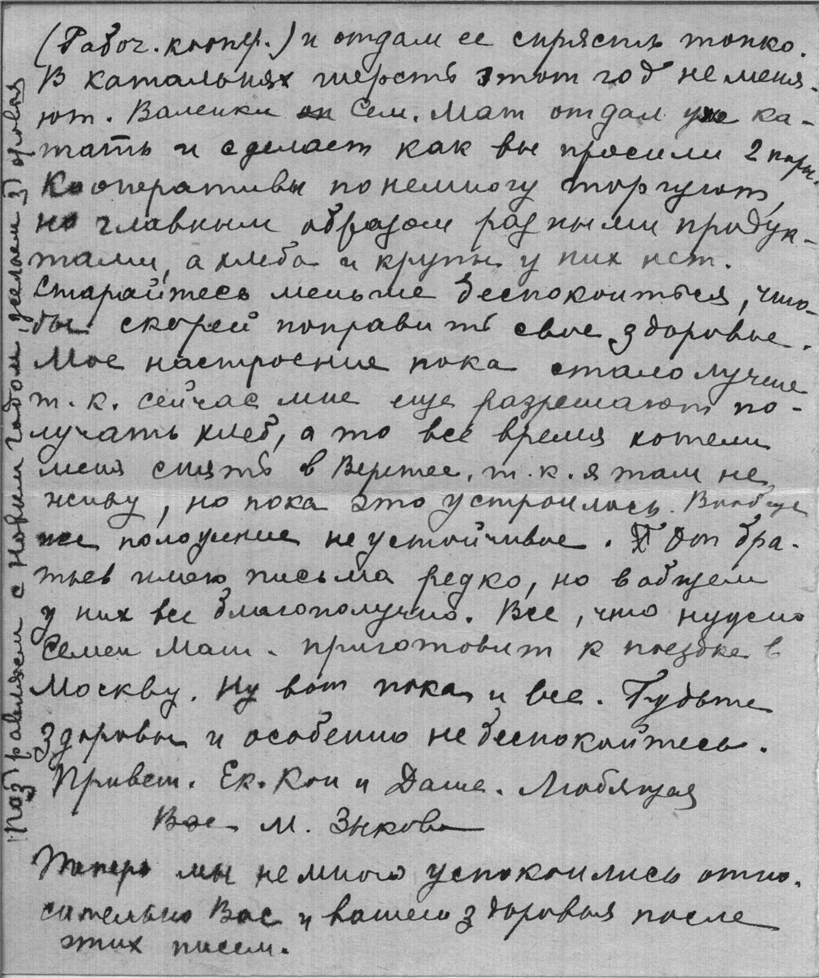 (Рабоч. коопер.) и отдам ее спрясть тонко.
В катальнях шерсть этот год не меня-
ют. Валенки Сем. Мат отдал уже ка-
тать и сделает как вы просили 2 пары.
Кооперативы понемногу торгуют,
но главным образом разными продук-
тами, а хлеба и крупы у них нет.
Старайтесь меньше беспокоиться, что-
бы скорей поправить свое здоровье.
Мое настроение пока стало лучше
т.к. сейчас мне еще разрешают по-
лучать хлеб, а то все время хотели
меня снять в Вертее, т.к. я там не
живу, но пока это устроилось. Вообще
же положение неустойчивое. От бра-
тьев имею письма редко, но в общем
у них все благополучно. Все, что нужно
Семен Мат. приготовит к поездке в
Москву. Ну вот пока и все. Будьте
здоровы и особенно не беспокойтесь.
Привет. Ек. Кон и Даше. Любящая
Вас М. Зыкова
Теперь мы немного успокоились отно-
сительно Вас и вашего здоровья после
этих писем.
Поздравляем с новым годом, желаем здоровья